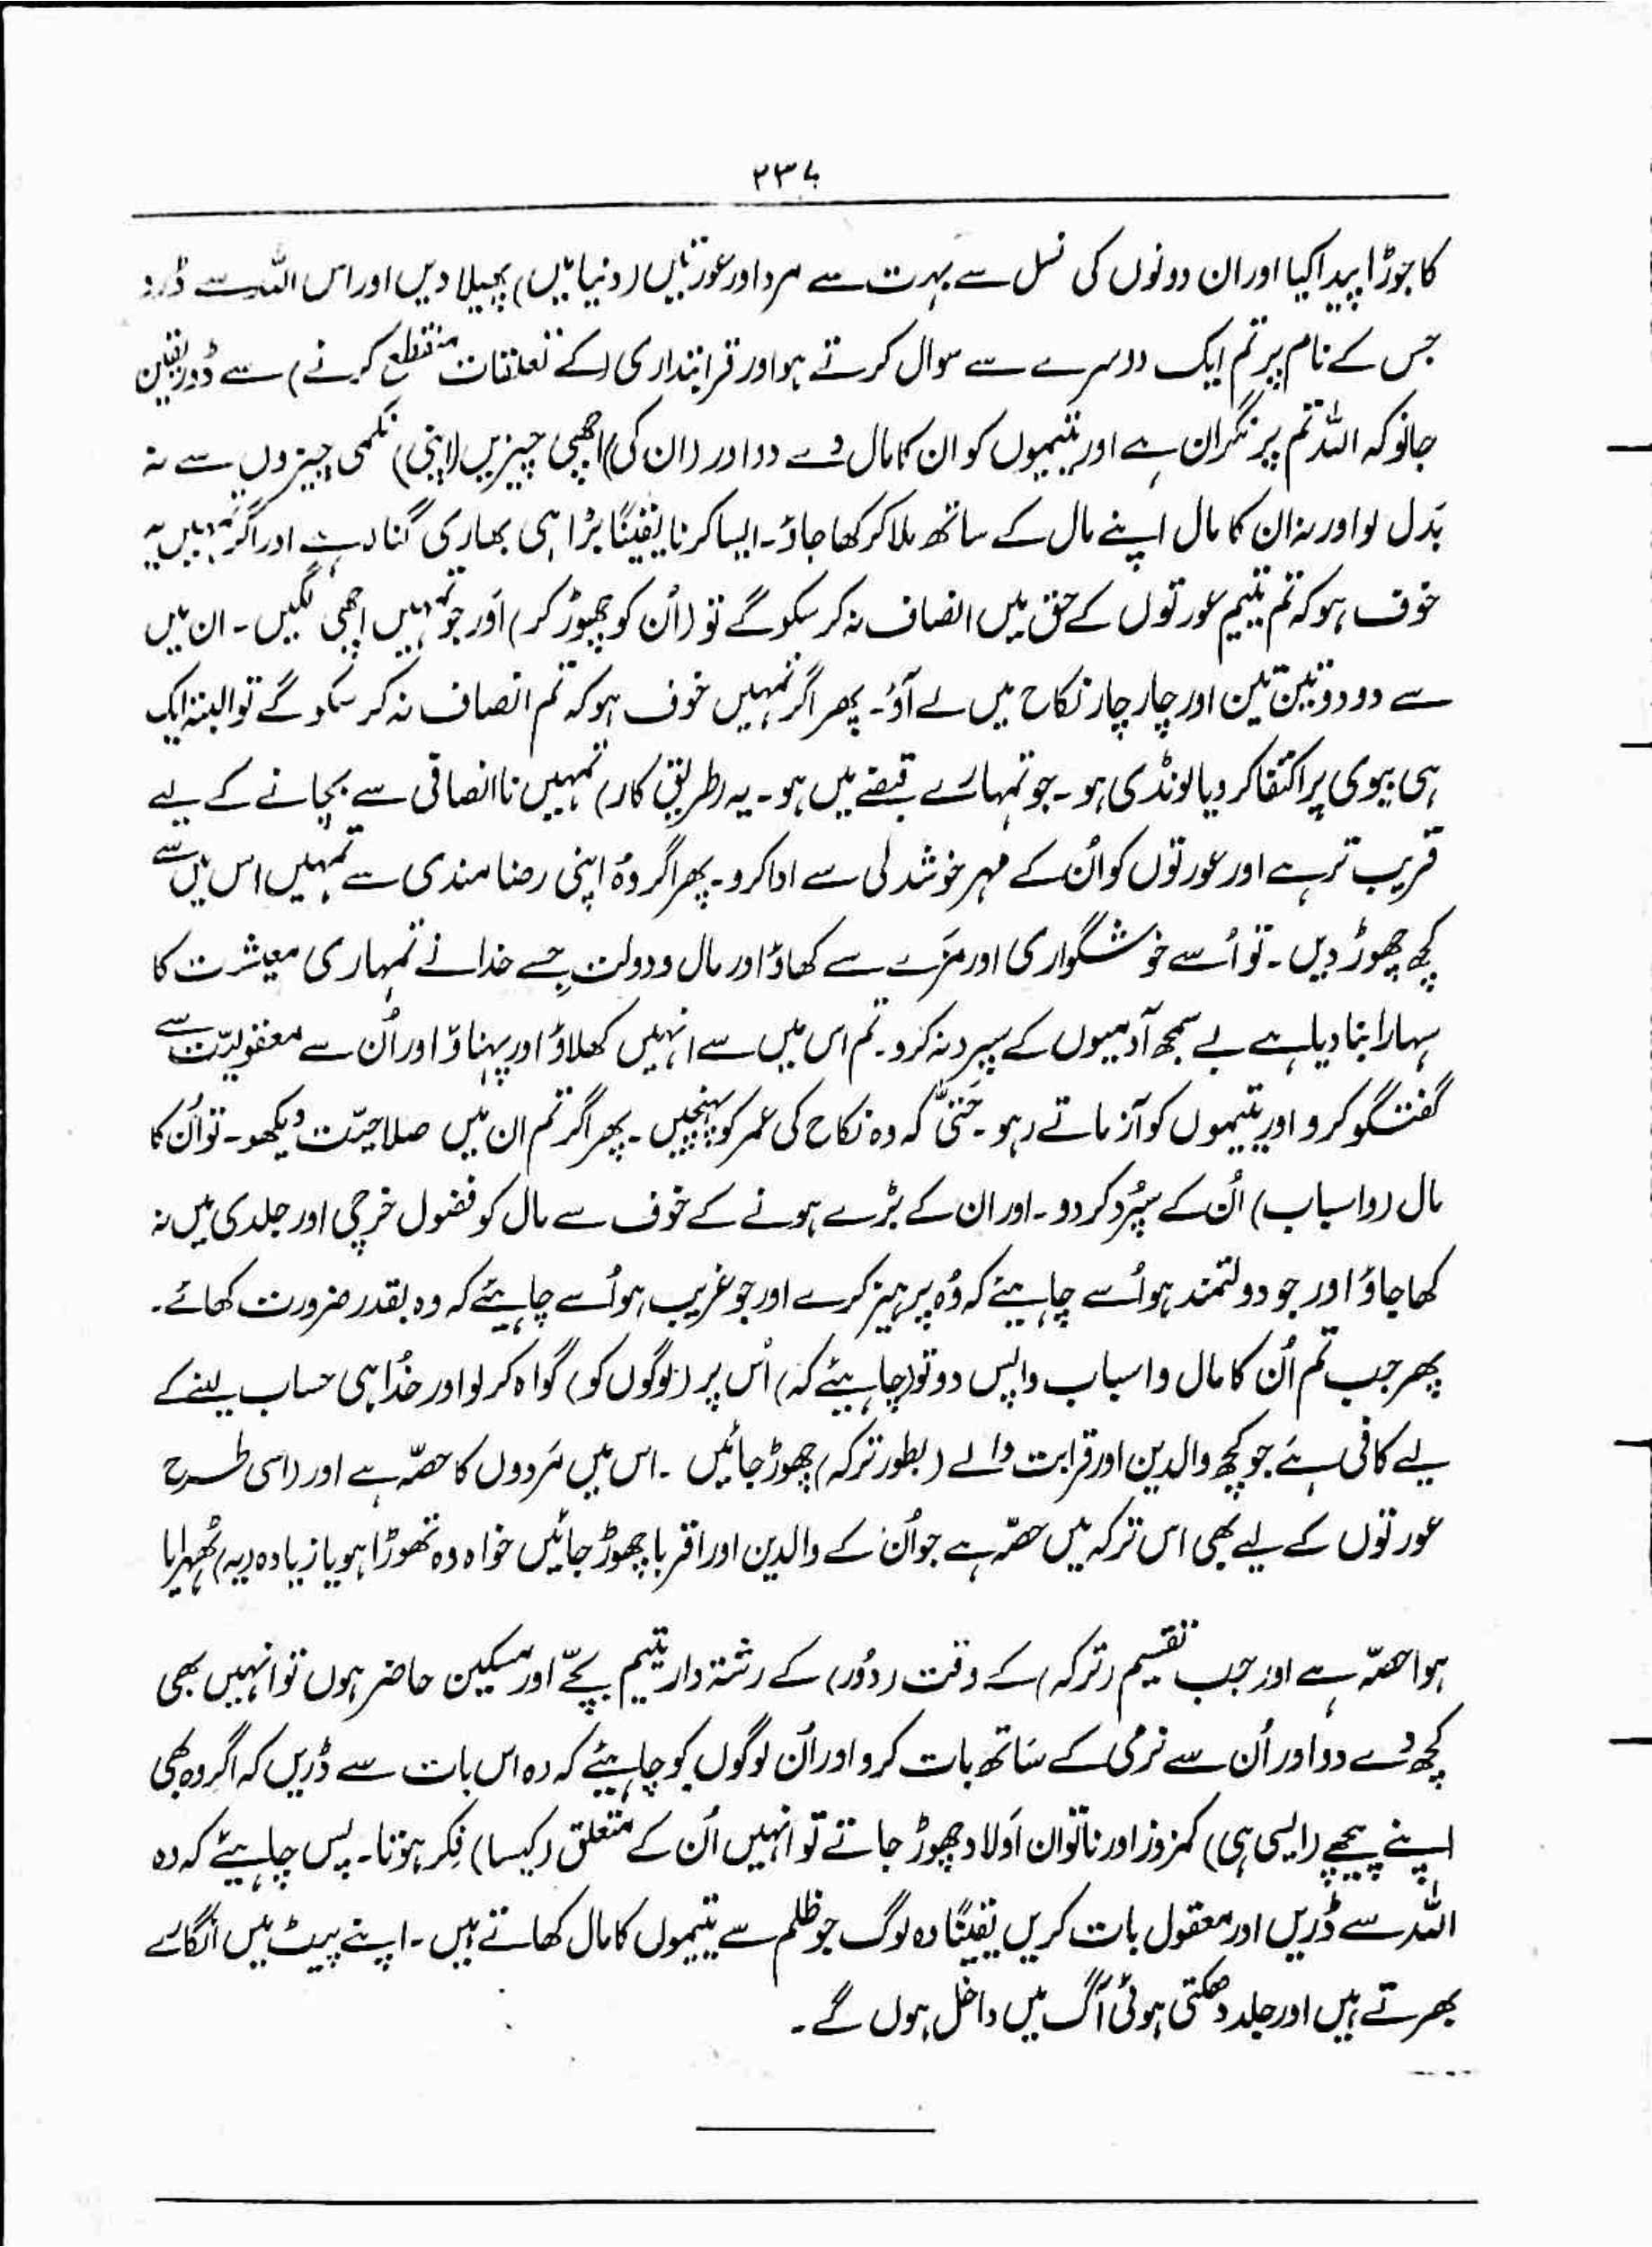 ۲۳۷
کا جوڑا پیدا کیا اور ان دونوں کی نسل سے بہت سے مرد اور عورتیں (دنیا میں) پھیلا دیں اور اس اللہ سے ڈرو
جس کے نام پر تم ایک دوسرے سے سوال کرتے ہو اور قرابتداری (کے تعلقات منقطع کرنے) سے ڈرو یقین
جانو کہ اللہ تم پر نگران ہے اور یتیموں کو ان کا مال دے دو اور (ان کی) اچھی چیزیں (اپنی) نکمی چیزوں سے نہ
بَدل لو اور نہ ان کا مال اپنے مال کے ساتھ ملا کر کھا جاؤ۔ ایسا کرنا یقیناً بڑا ہی بھاری گناہ ہے اور اگر تمہیں یہ
خوف ہو کہ تم یتیم عورتوں کے حق میں انصاف نہ کر سکو گے تو (اُن کو چھوڑ کر) اَور جو تمہیں اچھی لگیں۔ ان میں
سے دو دو تین تین اور چار چار نکاح میں لے آؤ۔ پھر اگر تمہیں خوف ہو کہ تم انصاف نہ کر سکو گے تو البتہ ایک
ہی بیوی پر اکتفا کرو یا لونڈی ہو۔ جو تمہارے قبضے میں ہو۔ یہ (طریق کار) تمہیں ناانصافی سے بچانے کے لیے
قریب تر ہے اور عورتوں کو اُن کے مہر خوشدلی سے ادا کرو۔ پھر اگر وہُ اپنی رضا مندی سے تمہیں اس میں سے
کچھ چھوڑ دیں۔ تو اُسے خوشگواری اور مَزے سے کھاؤ اور مال و دولت جِسے خدا نے تمہاری معیشرت کا
سہارا بنا دیا ہے بے سمجھ آدمیوں کے سپرد نہ کرو۔ تم اس میں سے انہیں کھلاؤ اور پہناؤ اور اُن سے معقولیّت سے
گفتگو کرو اور یتیموں کو آزماتے رہو۔ حَتیّٰ کہ وہ نکاح کی عمر کو پہنچیں۔ پھر اگر تم ان میں صلاحیّت دیکھو۔ تو اُن کا
مال (واسباب) اُن کے سپُرد کر دو۔ اور ان کے بڑے ہونے کے خوف سے مال کو فضول خرچی اور جلدی میں نہ
کھا جاؤ اور جو دولتمند ہو اُسے چاہیئے کہ وُہ پرہیز کرے اور جو غریب ہو اُسے چاہیئے کہ وہ بقدر ضرورت کھائے۔
پھر جب تم اُن کا مال و اسباب واپس دو تو (چاہیئے کہ) اُس پر (لوگوں کو) گواہ کر لو اور خُدا ہی حساب لینے کے
لیے کافی ہے جو کچھ والدین اور قرابت والے (بطور ترکہ) چھوڑ جائیں۔ اس میں مَردوں کا حصّہ ہے اور (اسی طرح
عورتوں کے لیے بھی اس ترکہ میں حصّہ ہے جو اُن کے والدین اور اقربا چھوڑ جائیں خواہ وہ تھوڑا ہو یا زیادہ (یہ) ٹھہرایا
ہوا حصّہ ہے اور جب تقسیم (ترکہ) کے وقت (دُور) کے رشتہ دار یتیم بچّے اور مسکین حاضر ہوں تو انہیں بھی
کچھ دے دو اور اُن سے نرمی کے سَاتھ بات کرو اور اُن لوگوں کو چاہیئے کہ وہ اس بات سے ڈریں کہ اگر وہ بھی
اپنے پیچھے (ایسی ہی) کمزور اور ناتوان اَولاد چھوڑ جاتے تو انہیں اُن کے متعلق (کیسا) فِکر ہوتا۔ پس چاہیئے کہ وہ
اللہ سے ڈریں اور معقول بات کریں یقیناً وہ لوگ جو ظلم سے یتیموں کا مال کھاتے ہیں۔ اپنے پیٹ میں انگارے
بھرتے ہیں اور جلد دھکتی ہوئی آگ میں داخل ہوں گے۔